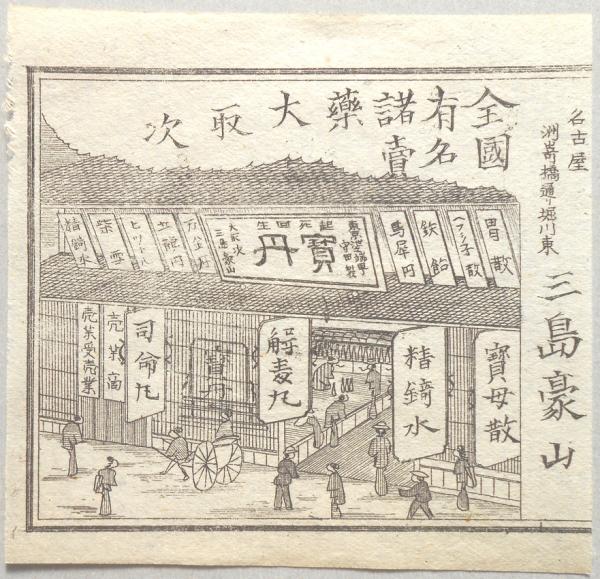 全國有名諸賣藥大取次
名古屋
洲嵜橋通り堀川東
三島豪山
胃散
ヘブリ子散
鉄飴
烏犀円
起死回生
寳丹
東京池之端
守田製
大取次
三島豪山
五龍円
紫雪
精錡水
寳母散
精錡水
解毒丸
寳丹
司命丸
売薬商
売薬受売業